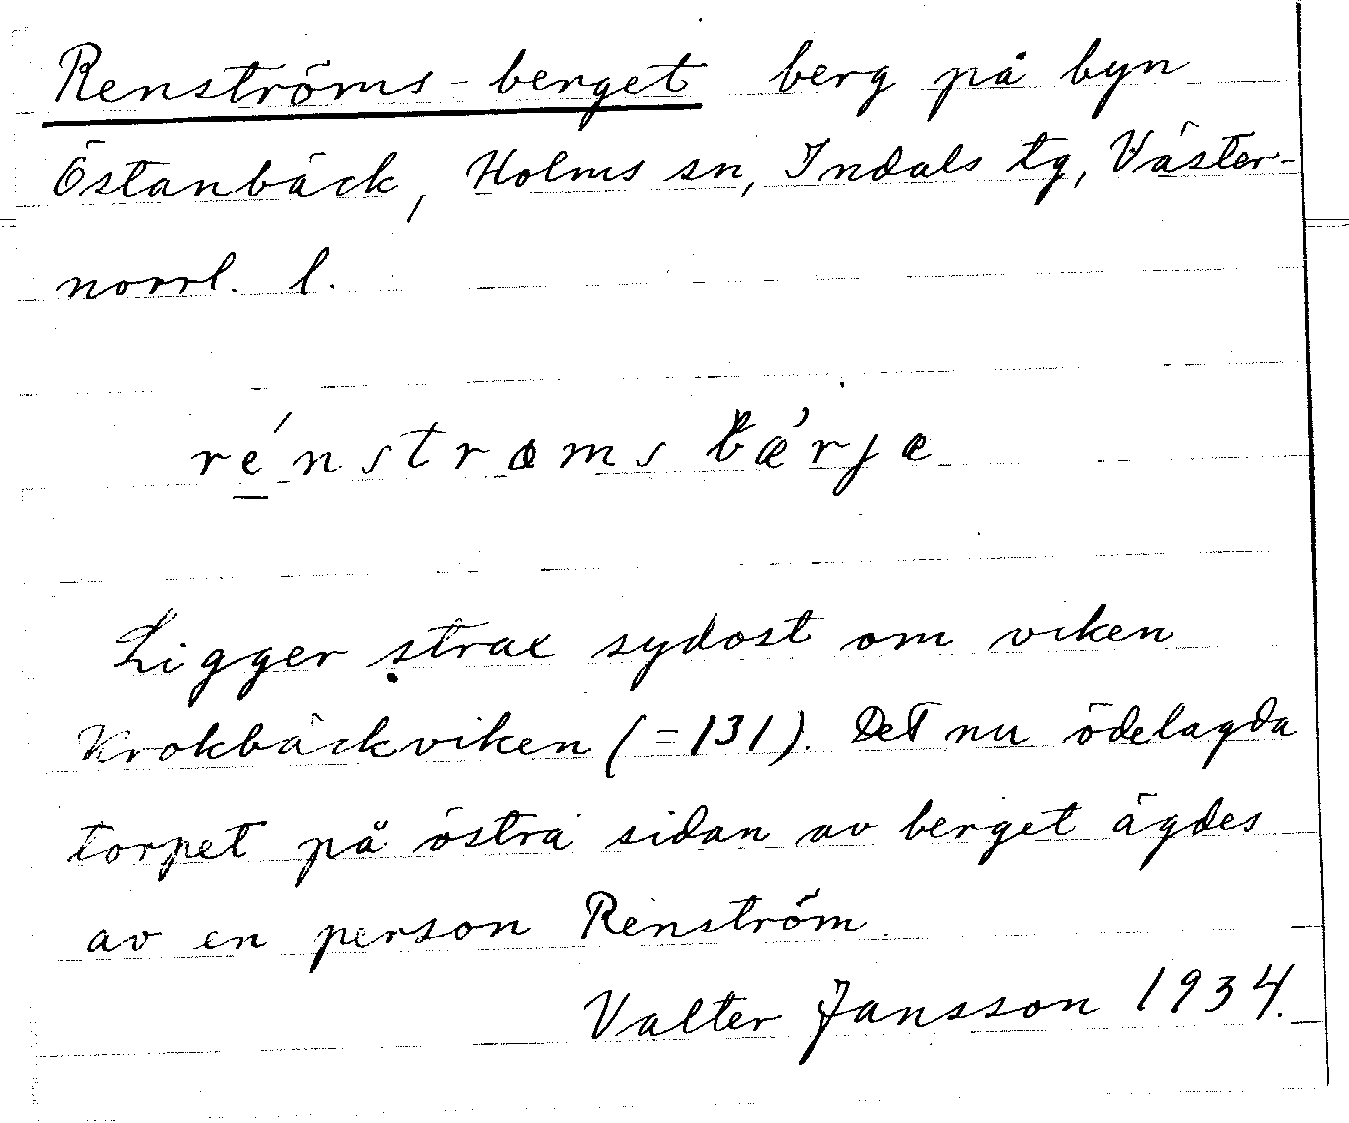 Renströms-berget berg på byn
Östanbäck, Holms sn, Indals tg, Väster-
norrl. l.
ré̱nstrœmsbǽrjæ
Ligger strax sydost om viken
Krokbäckviken (=131). Det nu ödelagda
torpet på östra sidan av berget ägdes
av en person Renström.
Valter Jansson 1934.